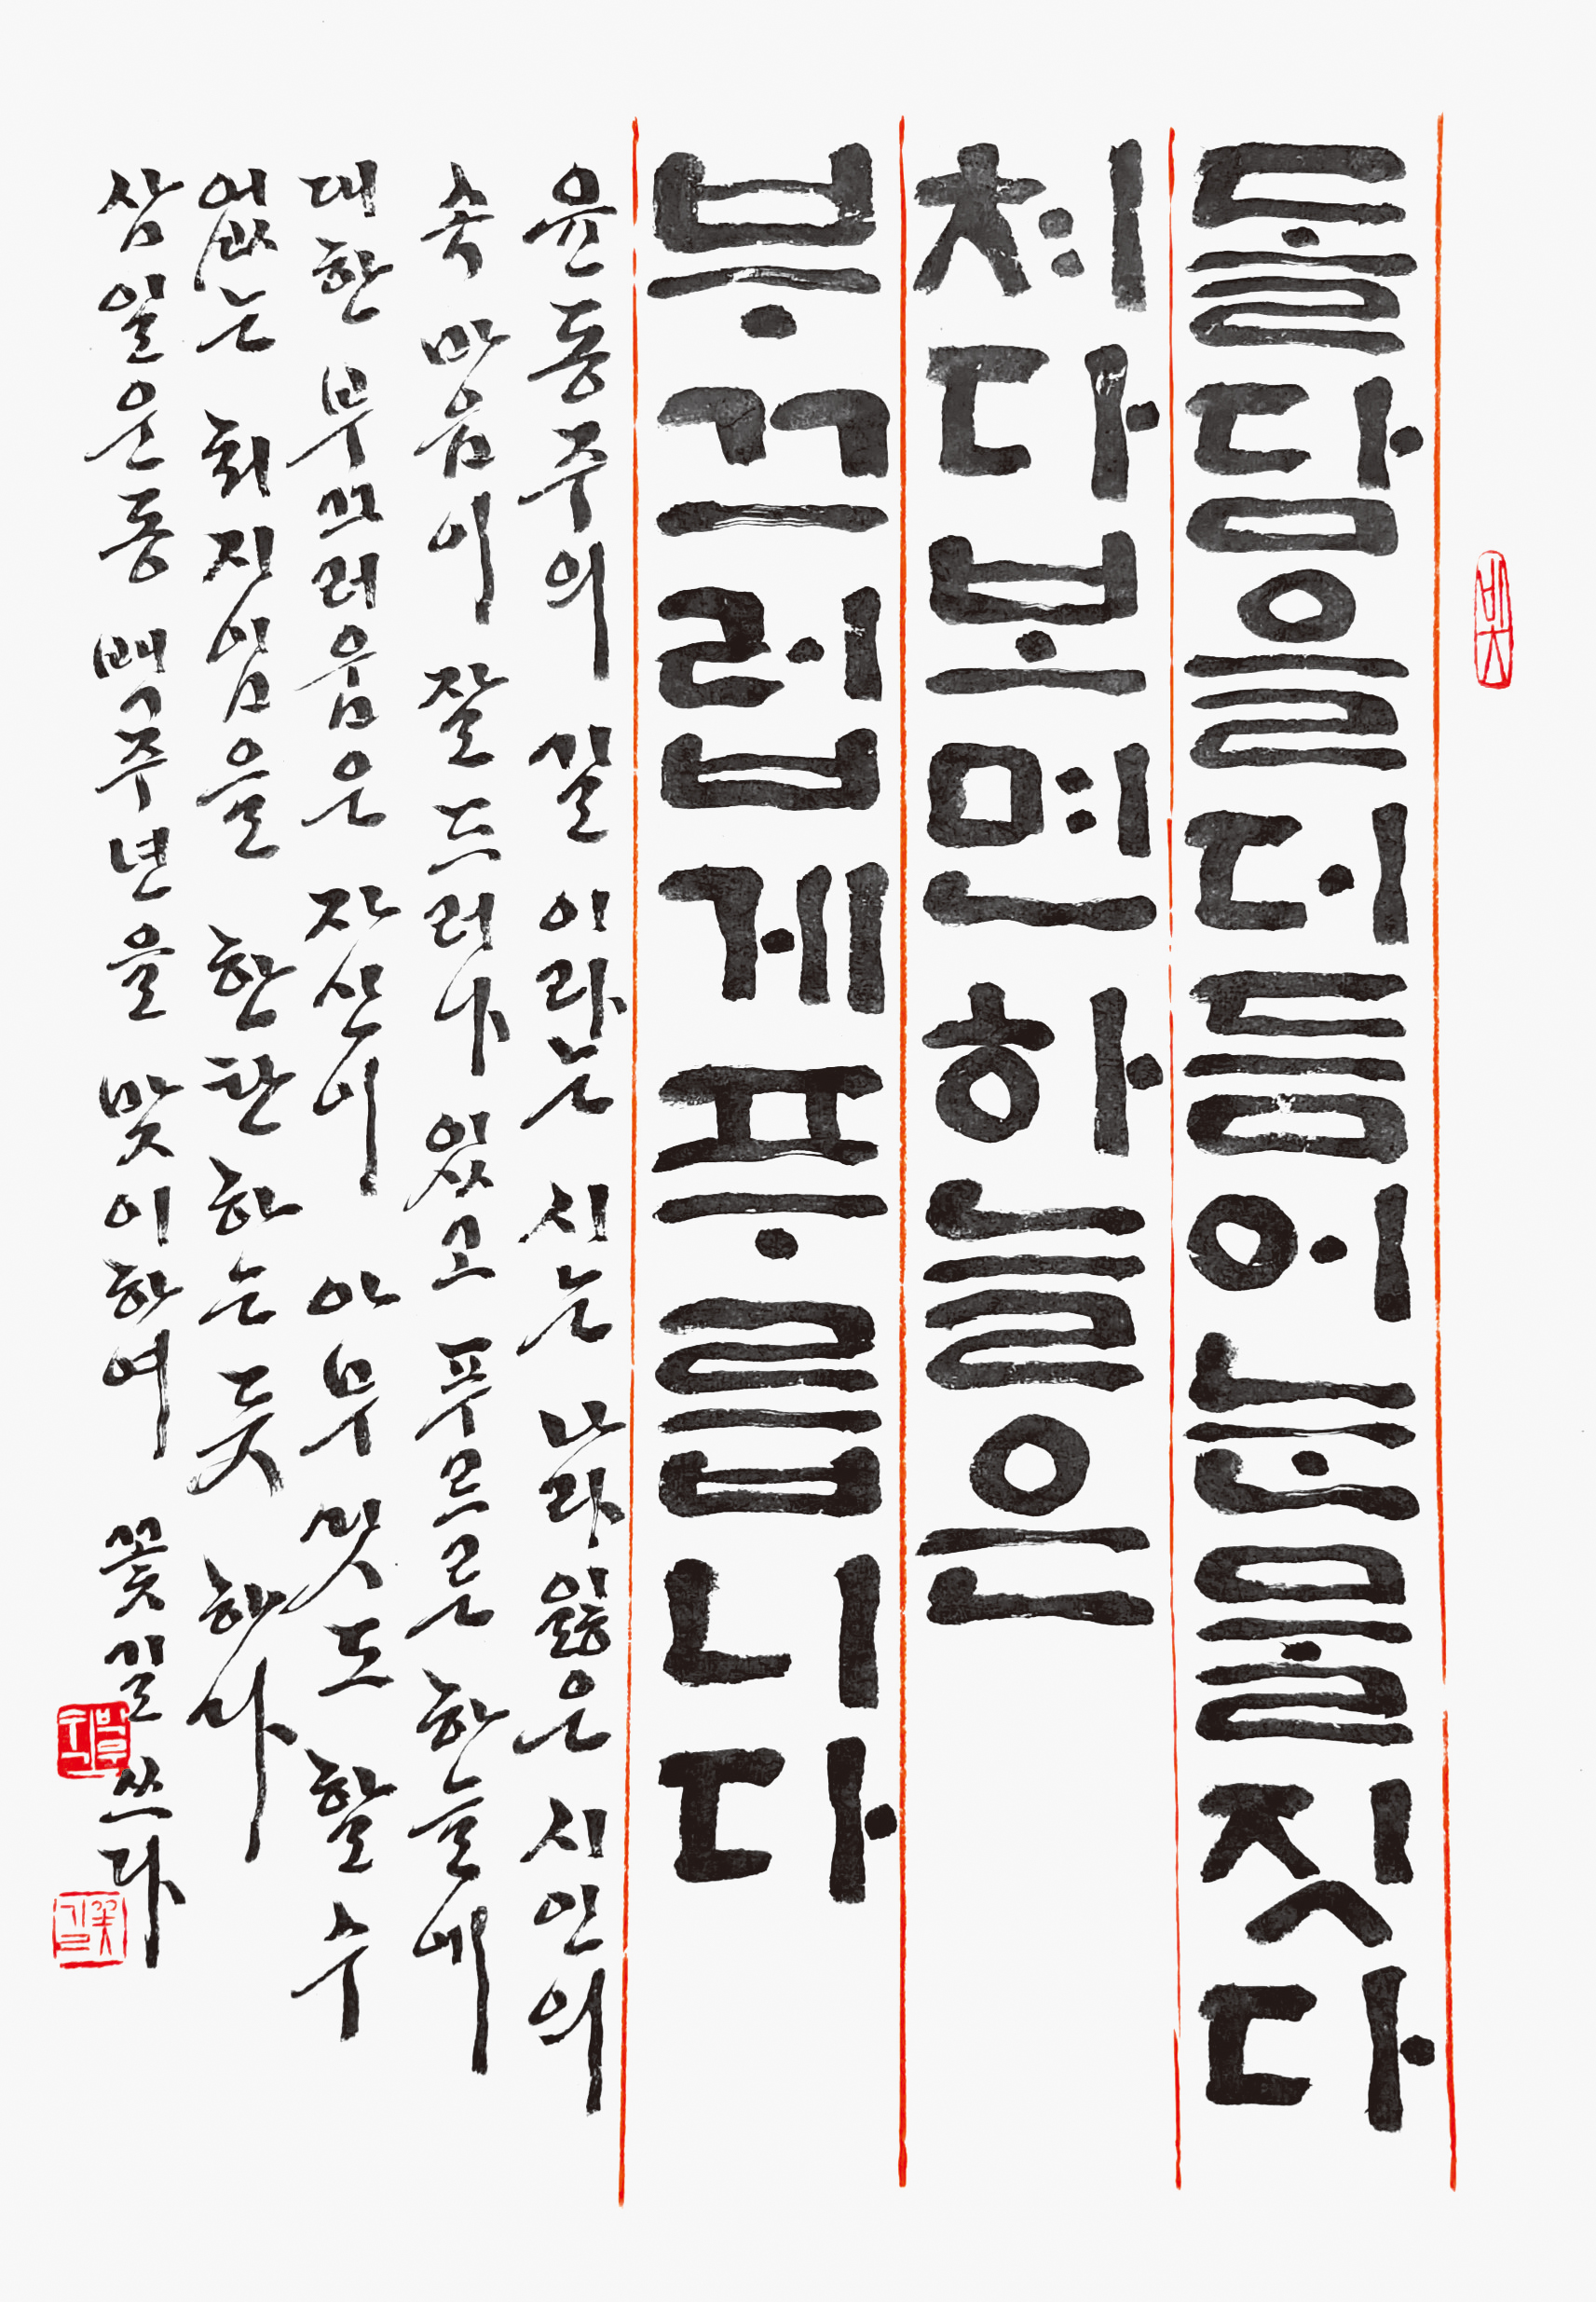 돌담을더듬어눈물짓다
쳐다보면하늘은
부끄럽게푸릅니다
윤동주의 길 이라는 시는 나라잃은 시인의
속 마음이 잘 드러나 있고 푸르른 하늘에
대한 부끄러움은 자신이 아무 것도 할 수
없는 처지임을 한탄하는 듯 하나
삼일운동 백주년을 맞이하여 꽃길 쓰다
꽃길